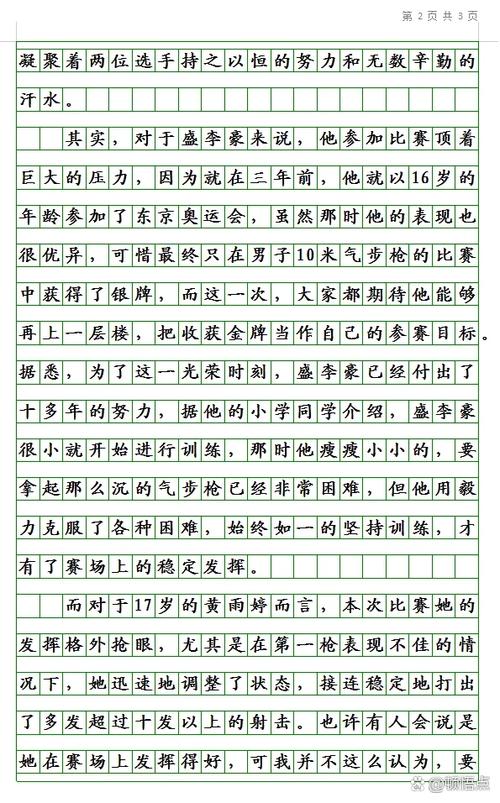 第 2 页 共 3 页
凝聚着两位选手持之以恒的努力和无数辛勤的
汗水。
其实，对于盛李豪来说，他参加比赛顶着
巨大的压力，因为就在三年前，他就以16岁的
年龄参加了东京奥运会，虽然那时他的表现也
很优异，可惜最终只在男子10米气步枪的比赛
中获得了银牌，而这一次，大家都期待他能够
再上一层楼，把收获金牌当作自己的参赛目标。
据悉，为了这一光荣时刻，盛李豪已经付出了
十多年的努力，据他的小学同学介绍，盛李豪
很小就开始进行训练，那时他瘦瘦小小的，要
拿起那么沉的气步枪已经非常困难，但他用毅
力克服了各种困难，始终如一的坚持训练，才
有了赛场上的稳定发挥。
而对于17岁的黄雨婷而言，本次比赛她的
发挥格外抢眼，尤其是在第一枪表现不佳的情
况下，她迅速地调整了状态，接连稳定地打出
了多发超过十发以上的射击。也许有人会说是
她在赛场上发挥得好，可我并不这么认为，要
@顿悟点